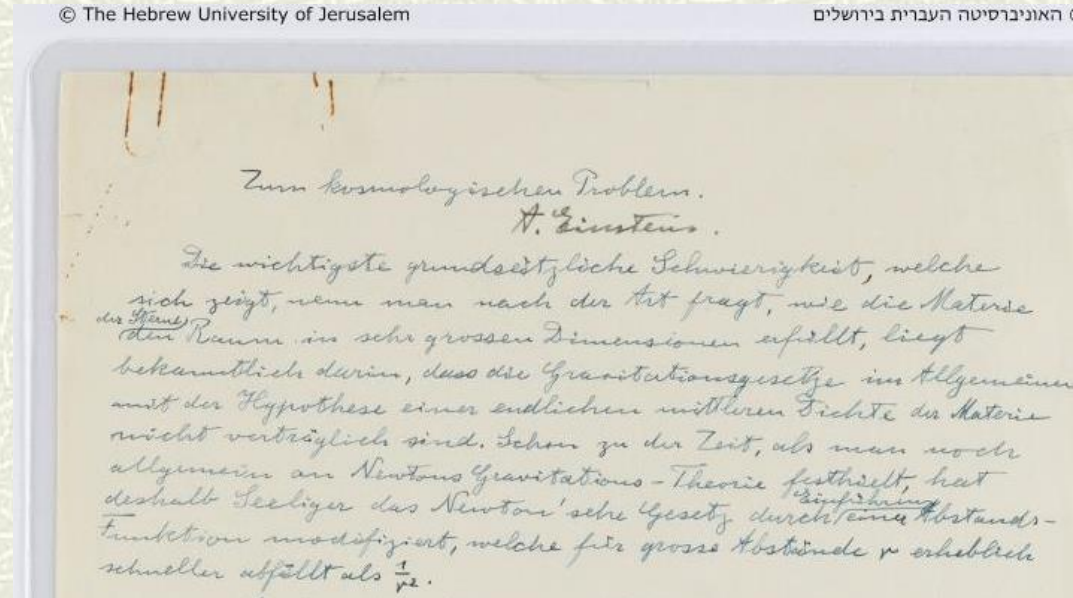 © The Hebrew University of Jerusalem
האוניברסיטה העברית בירושלים
Zum kosmologischen Problem.
A. Einstein.
Die wichtigste grundsätzliche Schwierigkeit, welche
sich zeigt, wenn man nach der Art fragt, wie die Materie
der Sterne
den Raum in sehr grossen Dimensionen erfüllt, liegt
bekanntlich darin, dass die Gravitationsgesetze im Allgemeinen
mit der Hypothese einer endlichen mittleren Dichte der Materie
nicht verträglich sind. Schon zu der Zeit, als man noch
allgemein an Newtons Gravitations-Theorie festhielt, hat
Einführung
deshalb Seeliger das Newton'sche Gesetz durch einer Abstands-
Funktion modifiziert, welche für grosse Abstände r erheblich
schneller abfällt als 1/r².